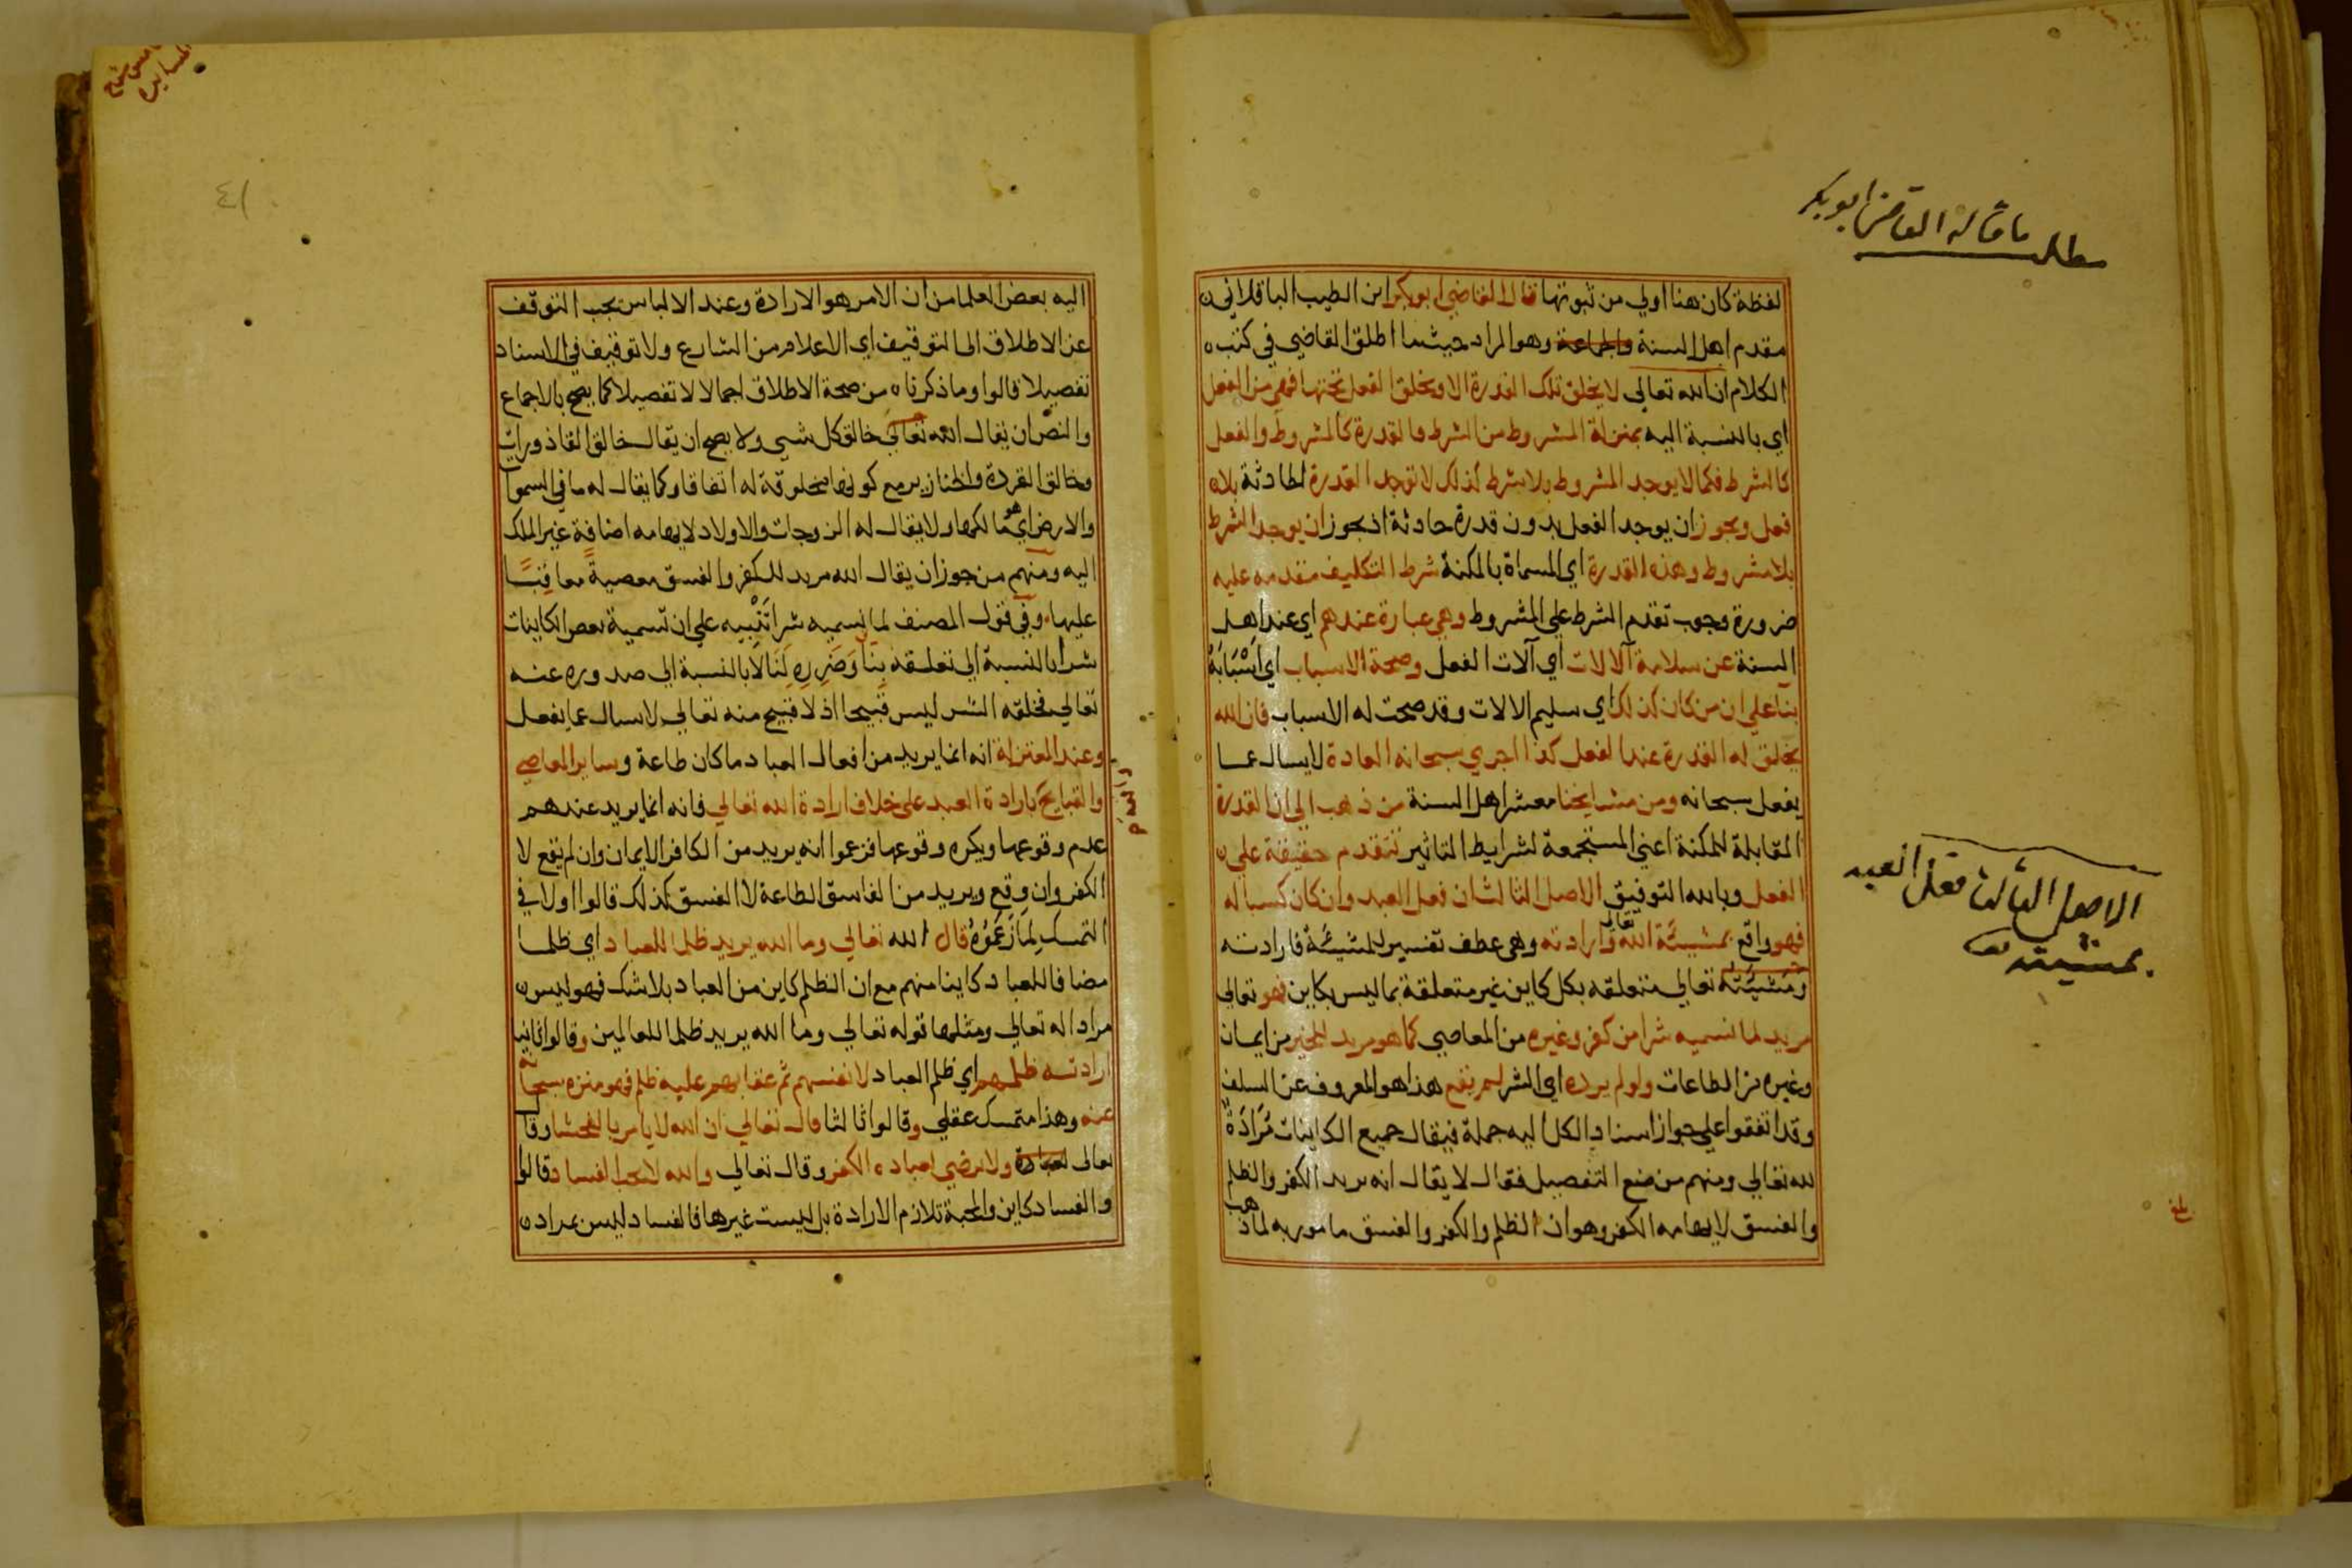 مطلب ما قاله القاضي ابو بكر
لفظة كان هنا اولي من ثبوتها قال القاضي ابو بكر ابن الطيب الباقلاني
مقدم اهل السنة والجماعة وهو المراد حيثما اطلق القاضي في كتب
الكلام ان الله تعالي لا يخلق تلك القدرة الا ويخلق الفعل تحتها فهي من الفعل
اي بالنسبة اليه بمنزلة المشروط من الشرط فالقدرة كالمشروط والفعل
كالشرط فكما لا يوجد المشروط بلا شرط كذلك لا توجد القدرة الحادثة بلا
فعل ويجوز ان يوجد الفعل بدون قدرة حادثة اذ يجوز ان يوجد الشرط
بلا مشروط وهذه القدرة اي المسماة بالمكنة شرط التكليف متقدمه عليه
ضرورة وجوب تقدم الشرط علي المشروط وهي عبارة عندهم اي عند اهل
السنة عن سلامة آلالات اي آلات الفعل وصحة الاسباب اي اسْبَابَهُ
بناً علي ان من كان كذلك اي سليم الالات وقد صحت له الاسباب فان الله
يخلق له القدرة عند الفعل كذا اجري سبحانه العادة لا يسال عما
يفعل سبحانه ومن مشايخنا معشر اهل السنة من ذهب الي ان القدرة
المقابلة للمكنة اعني المستجمعة لشرايط التاثير تتقدم حقيقة علي
الفعل وبالله التوفيق الاصل الثالث ان فعل العبد وان كان كسبا له
الاصل الثالث فعل العبد
بمشيئته
فهو واقع بمشيئة الله تعالى وارادته وهي عطف تفسير للمشيئة فارادته
ومَشيَّته تعالي متعلقه بكل كاين غير متعلقة بما ليس بكاين فهو تعالي
مريد لما نسميه شرا من كفر وغيره من المعاصي كما هو مريد للخير من ايمان
وغيره من الطاعات ولو لم يرده اي الشر لم يقع هذا هو المعروف عن السلف
وقد اتفقوا علي جواز اسناد الكل اليه جملة فيقال جميع الكاينات مُرَادَةٌ
لله تعالي ومنهم من منع التفصيل فقال لا يقال انه يريد الكفر والظلم
والفسق لايهامه الكفر وهو ان الظلم والكفر والفسق مامور به لما ذهب
بلغ
٤١
اليه بعض العلما من ان الامر هو الارادة وعند الالباس يجب التوقف
عن الاطلاق الى التوقيف اي الاعلام من الشارع ولا توقيف في الاسناد
تفصيلا قالوا وما ذكرناه من صحة الاطلاق اجمالا لا تفصيلا كما يصح بالاجماع
والنص ان يقال الله تعالي خالق كل شي ولا يصح ان يقال خالق القاذورات
وخالق القردة والخنازير مع كونها مخلوقة له اتفاقا وكما يقال له ما في السموا
والارض اي هو مالكها ولا يقال له الزوجات والاولاد لايهامه اضافة غير الملك
اليه ومنهم من جوز ان يقال الله مريد للكفر والفسق معصيةً معاقِبًا
عليها وفي قول المصنف لما نسميه شرا تَنْبيه علي ان تسمية بعض الكاينات
شرا بالنسبة الي تعلقه بِنَا وَضَرِرِهِ لَنَا لَا بالنسبة الي صدوره عنه
تعالي فخلقه الشر ليس قبيحا اذ لا قبيح منه تعالي لا يسال عما يفعل
وعند المعتزلة انه انما يريد من افعال العباد ما كان طاعة وساير المعاصي
والقبايح بارادة العبد على خلاف ارادة الله تعالي فانه انما يريد عندهم
عدم وقوعها ويكره وقوعها فزعموا انه يريد من الكافر الايمان وان لم يقع لا
الكفر وان وقع ويريد من الفاسق الطاعة لا الفسق كذلك قالوا اولا في
التمسك لِمَا زَعَمُوُهُ قال الله تعالي وما الله يريد ظلما للعباد اي ظلما
مضافا للعباد كاينا منهم مع ان الظلم كاين من العباد بلا شك فهو ليس
مرادا له تعالي ومثلها قوله تعالي وما الله يريد ظلما للعالمين وقالوا ثانيا
ارادته ظلمهم اي ظلم العباد لانفسهم ثم عقابهم عليه ظلم فهو منزه سبحانه
عنه وهذا متمسك عقلي وقالوا ثالثا قال تعالي ان الله لا يامر بالفحشا وقال
تعالى ولا يرضي لعباده الكفر وقال تعالي والله لا يحب الفساد قالوا
والفساد كاين والمحبة تلازم الارادة بل ليست غيرها فالفساد ليس بمراد